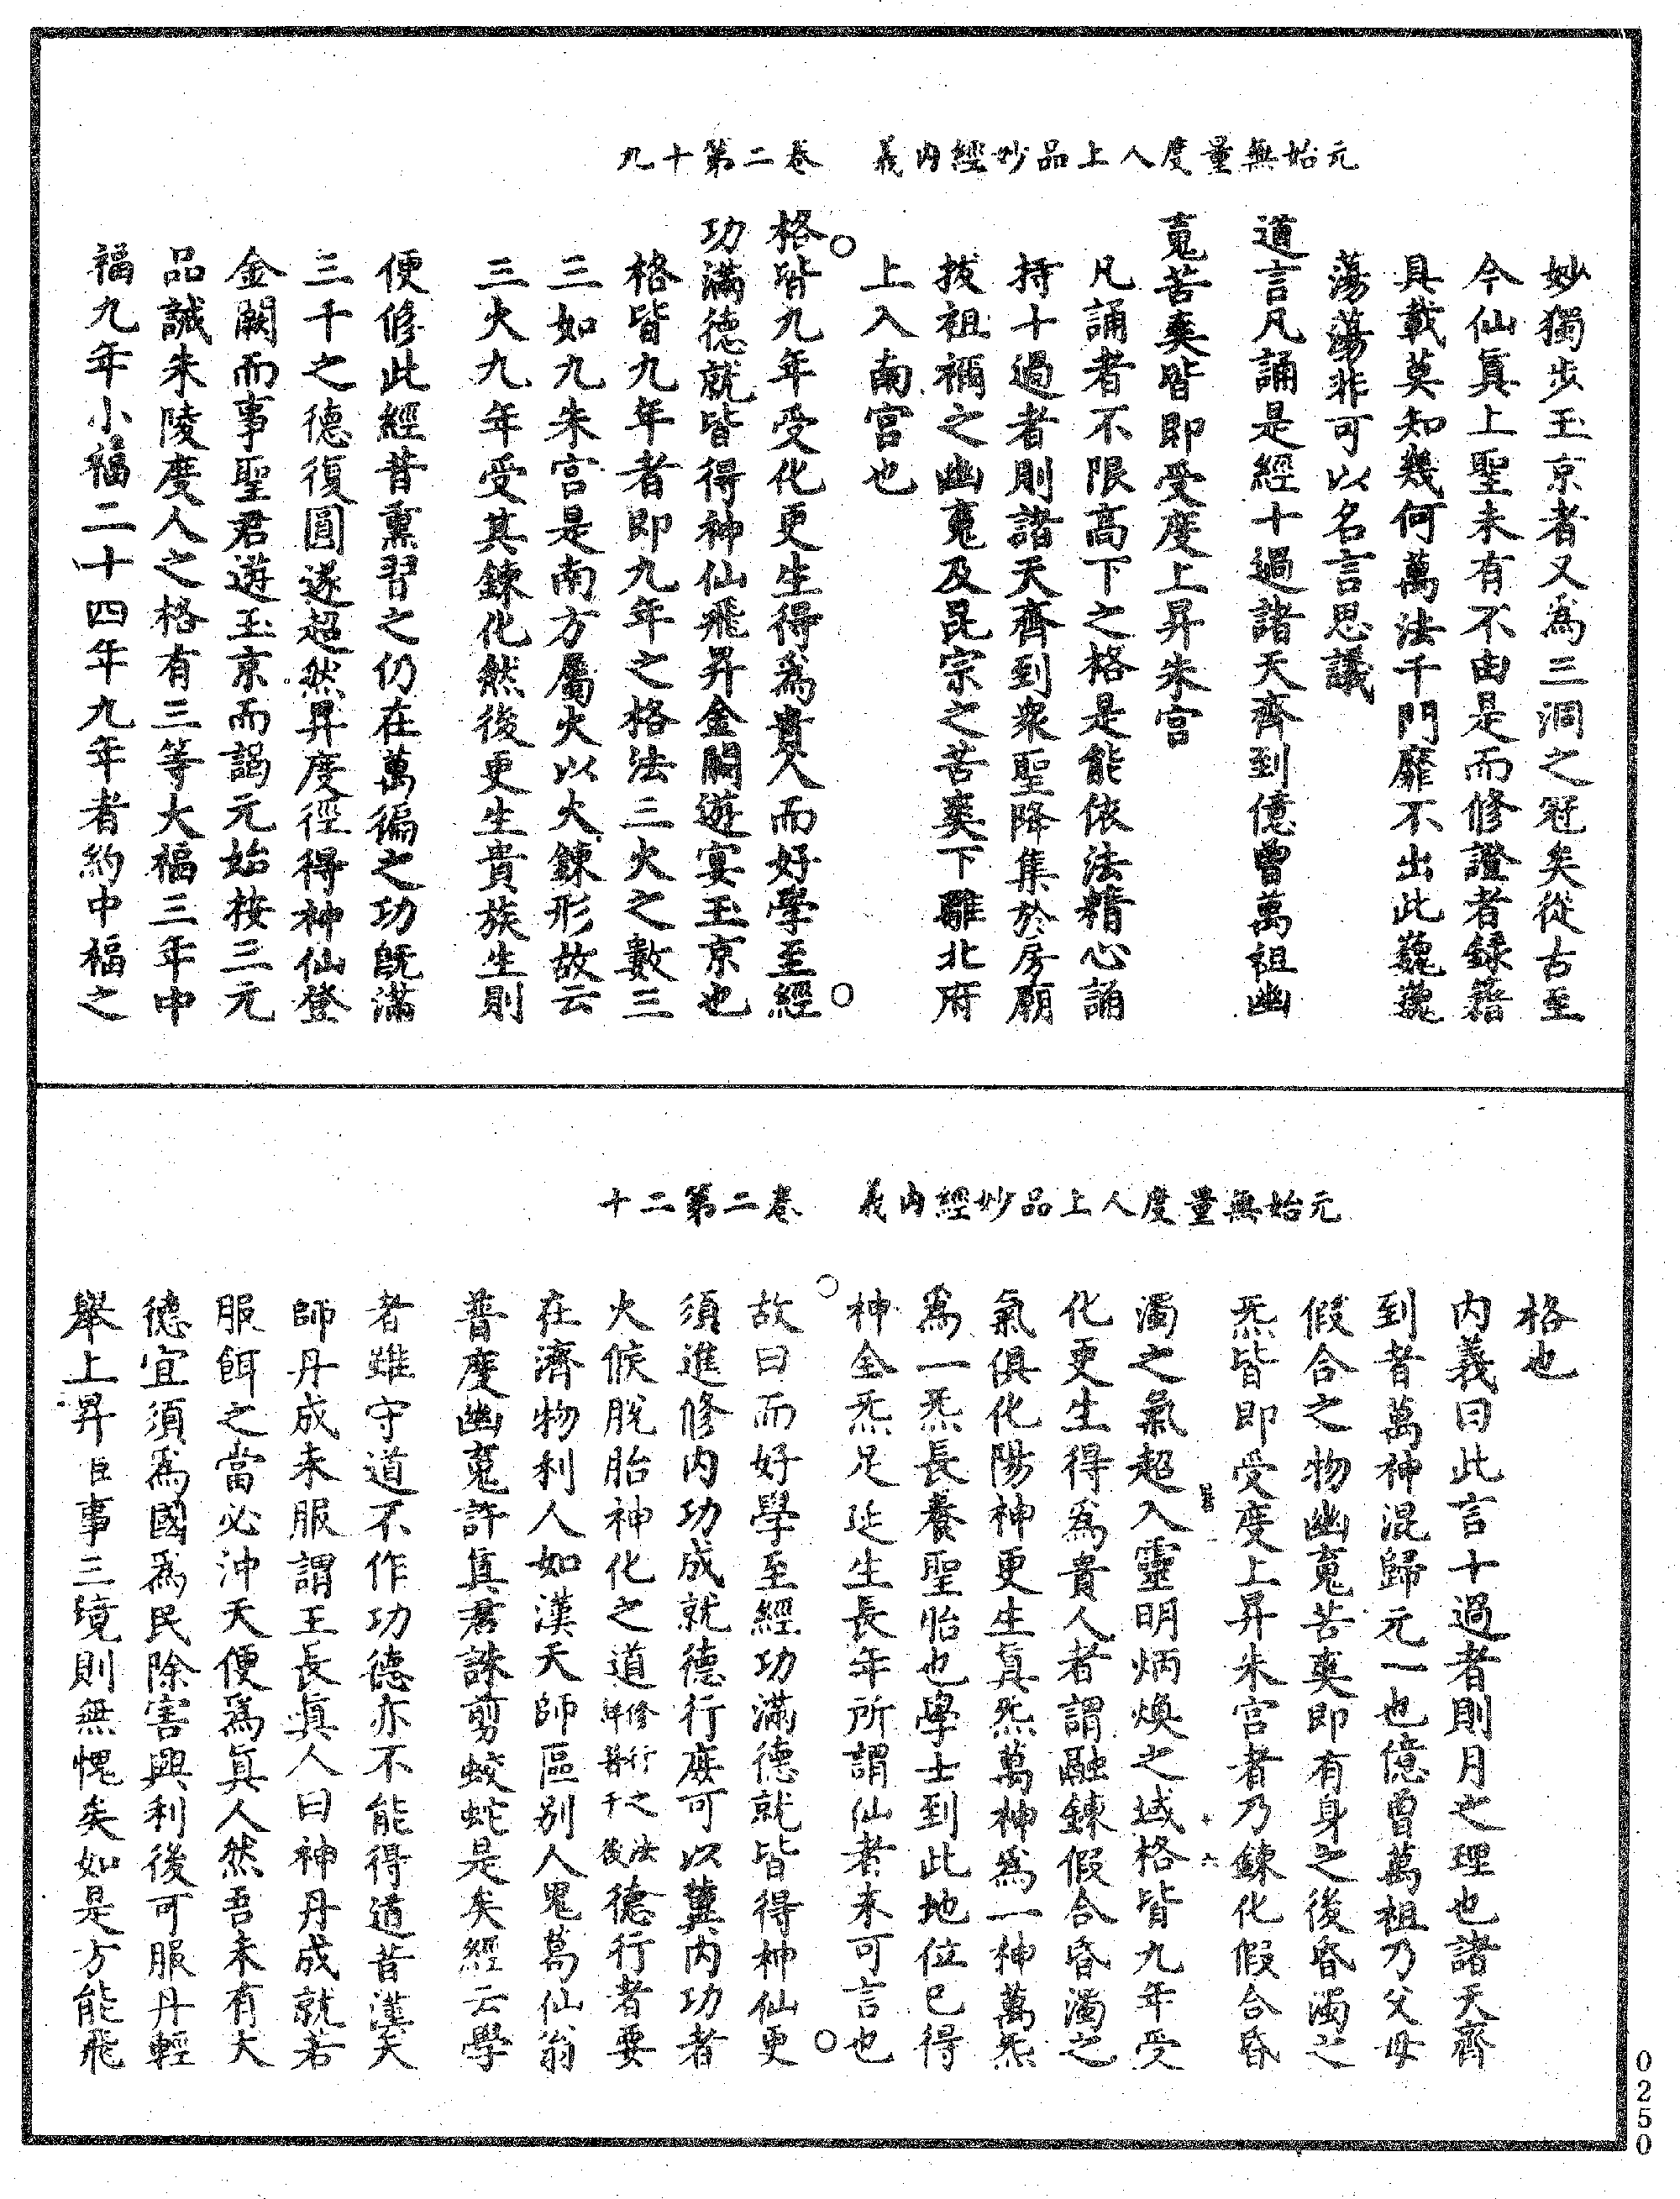 元始無量度人上品妙經內義　卷二第十九
妙獨步玉京者又爲三洞之冠矣從古至
今仙眞上聖未有不由是而修證者錄籍
具載莫知幾何萬法千門靡不出此巍巍
蕩蕩非可以名言思議
道言凡誦是經十過諸天齊到億曾萬祖幽
䰟苦爽皆即受度上昇朱宮
凡誦者不限高下之格是能依法精心誦
持十過者則諸天齊到衆聖降集於房廟
拔祖禰之幽䰟及昆宗之苦爽下離北府
上入南宮也
格皆九年受化更生得爲貴人而好學至經
功滿德就皆得神仙飛昇金闕遊宴玉京也
格皆九年者即九年之格法三火之數三
三如九朱宮是南方屬火以火鍊形故云
三火九年受其鍊化然後更生貴族生則
便修此經昔熏習之仍在萬徧之功旣滿
三千之德復圓遂超然昇度徑得神仙登
金闕而事聖君遊玉京而謁元始桉三元
品誡朱陵度人之格有三等大福三年中
福九年小福二十四年九年者約中福之
元始無量度人上品妙經內義　卷二第二十
格也
內義曰此言十過者則月之理也諸天齊
到者萬神混歸元一也億曾萬祖乃父母
假合之物幽䰟苦爽即有身之後昏濁之
炁皆即受度上昇朱宮者乃鍊化假合昏
濁之氣超入靈明炳煥之域格皆九年受
化更生得爲貴人者謂融鍊假合昏濁之
氣俱化陽神更生眞炁萬神爲一神萬炁
爲一炁長養聖胎也學士到此地位已得
神全炁足延生長年所謂仙者未可言也
故曰而好學至經功滿德就皆得神仙更
須進修內功成就德行庶可以冀內功者
火候脫胎神化之道修行之法詳著于後德行者要
在濟物利人如漢天師區別人鬼葛仙翁
普度幽䰟許眞君誅剪蛟蛇是矣經云學
者雖守道不作功德亦不能得道昔漢天
師丹成未服謂王長眞人曰神丹成就若
服餌之當必沖天便爲眞人然吾未有大
德宜須爲國爲民除害興利後可服丹輕
舉上昇臣事三境則無愧矣如是方能飛
0250